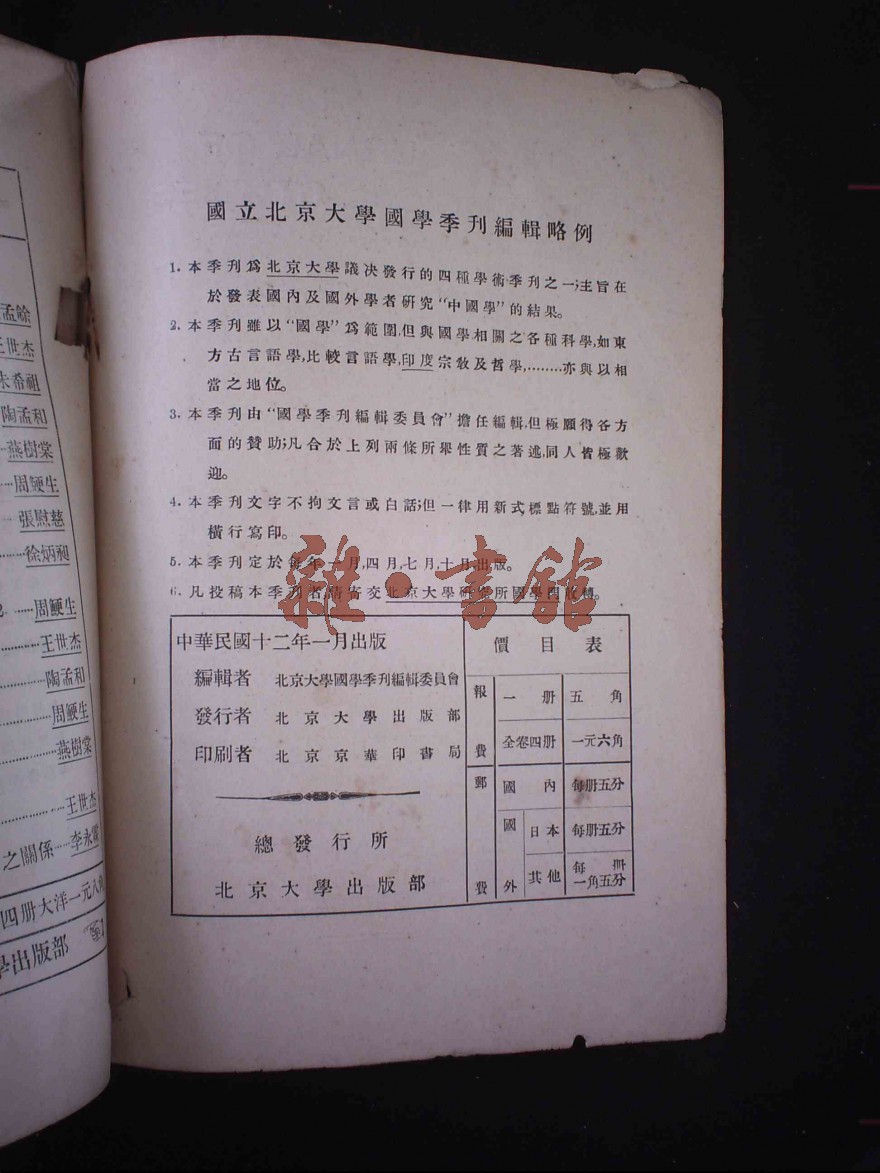 國立北京大學國學季刊編輯略例
1. 本季刊爲北京大學議决發行的四種學術季刊之一;主旨在
於發表國內及國外學者研究“中國學”的結果。
2. 本季刊雖以“國學”爲範圍,但與國學相關之各種科學,如東
方古言語學,比較言語學,印度宗教及哲學,………亦與以相
當之地位。
3. 本季刊由“國學季刊編輯委員會”擔任編輯,但極願得各方
面的贊助;凡合於上列兩條所舉性質之著述,同人皆極歡
迎。
4. 本季刊文字不拘文言或白話;但一律用新式標點符號,並用
橫行寫印。
5. 本季刊定於每年一月,四月,七月,十月,出版。
6. 凡投稿本季刊者,請寄交北京大學研究所國學門收轉。
雜·書館
中華民國十二年一月出版
編輯者 北京大學國學季刊編輯委員會
發行者 北京大學出版部
印刷者 北京京華印書局
總發行所
北京大學出版部
價目表
報費 一册 五角
全卷四册 一元六角
郵費 國內 每册五分
國外 日本 每册五分
其他 每册一角五分
孟餘
王世杰
朱希祖
陶孟和
燕樹棠
周鯁生
張慰慈
徐炳昶
周鯁生
王世杰
陶孟和
周鯁生
燕樹棠
王世杰
之關係……李永霖
四册大洋一元八角
學出版部